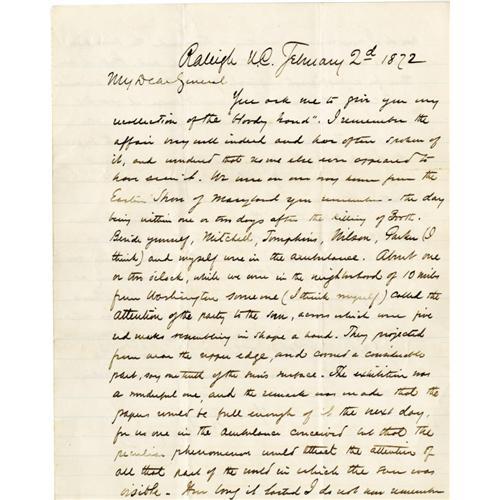 Raleigh N.C. February 2d 1872
My Dear General
You ask me to give you my
recollection of the "bloody hand". I remember the
affair very well indeed and have often spoken of
it, and wondered that no one else ever appeared to
have seen it. We were on our way home from the
Eastern Shore of Maryland you remember - the day
being within one or two days after the killing of Booth.
Beside yourself, Mitchell, Tompkins, Wilson, Parker (I
think) and myself were in the ambulance. About one
or two o'clock, while we were in the neighborhood of 10 miles
from Washington some one (I think myself) called the
attention of the party to the sun, across which were five
red marks resembling in shape a hand. They projected
from near the upper edge, and covered a considerable
part, say one tenth of the sun's surface. The exhibition was
a wonderful one, and the remark was made that the
papers would be full enough of it the next day,
for no one in the ambulance conceived but that the
peculiar phenomenon would attract the attention of
all that part of the world in which the sun was
visible - How long it lasted I do not now remember